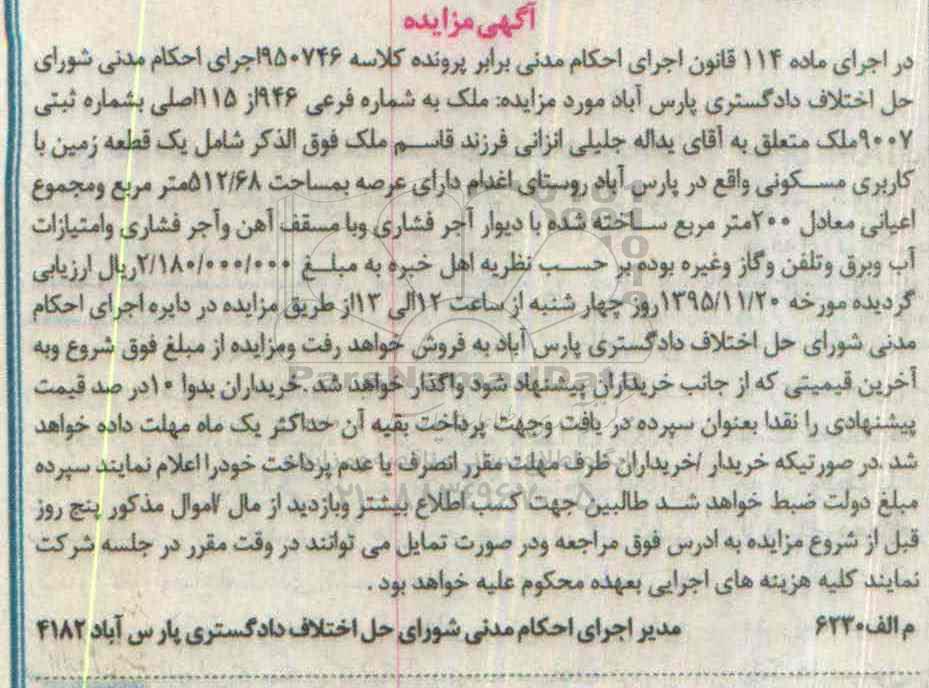 آگهی مزایده
در اجرای ماده ۱۱۴ قانون اجرای احکام مدنی برابر پرونده کلاسه ۹۵۰۷۴۶اجرای احکام مدنی شورای
حل اختلاف دادگستری پارس آباد مورد مزایده: ملک به شماره فرعی ۹۴۶از ۱۱۵اصلی بشماره ثبتی
۹۰۰۷ملک متعلق به آقای یداله جلیلی انزانی فرزند قاسم ملک فوق الذکر شامل یک قطعه زمین با
کاربری مسکونی واقع در پارس آباد روستای اغدام دارای عرصه بمساحت ۵۱۲/۶۸متر مربع ومجموع
اعیانی معادل ۲۰۰متر مربع ساخته شده با دیوار آجر فشاری وبا مسقف آهن وآجر فشاری وامتیازات
آب وبرق وتلفن وگاز وغیره بوده بر حسب نظریه اهل خبره به مبلغ ۲/۱۸۰/۰۰۰/۰۰۰ریال ارزیابی
گردیده مورخه ۱۳۹۵/۱۱/۲۰روز چهار شنبه از ساعت ۱۲الی ۱۳از طریق مزایده در دایره اجرای احکام
مدنی شورای حل اختلاف دادگستری پارس آباد به فروش خواهد رفت ومزایده از مبلغ فوق شروع وبه
آخرین قیمیتی که از جانب خریداران پیشنهاد شود واگذار خواهد شد .خریداران بدوا ۱۰در صد قیمت
پیشنهادی را نقدا بعنوان سپرده در یافت وجهت پرداخت بقیه آن حداکثر یک ماه مهلت داده خواهد
شد .در صورتیکه خریدار /خریداران ظرف مهلت مقرر انصرف یا عدم پرداخت خودرا اعلام نمایند سپرده
مبلغ دولت ضبط خواهد شد طالبین جهت کسب اطلاع بیشتر وبازدید از مال /اموال مذکور پنج روز
قبل از شروع مزایده به ادرس فوق مراجعه ودر صورت تمایل می توانند در وقت مقرر در جلسه شرکت
نمایند کلیه هزینه های اجرایی بعهده محکوم علیه خواهد بود .
م الف۶۲۳۰ مدیر اجرای احکام مدنی شورای حل اختلاف دادگستری پارس آباد ۴۱۸۲
ParsNamadData